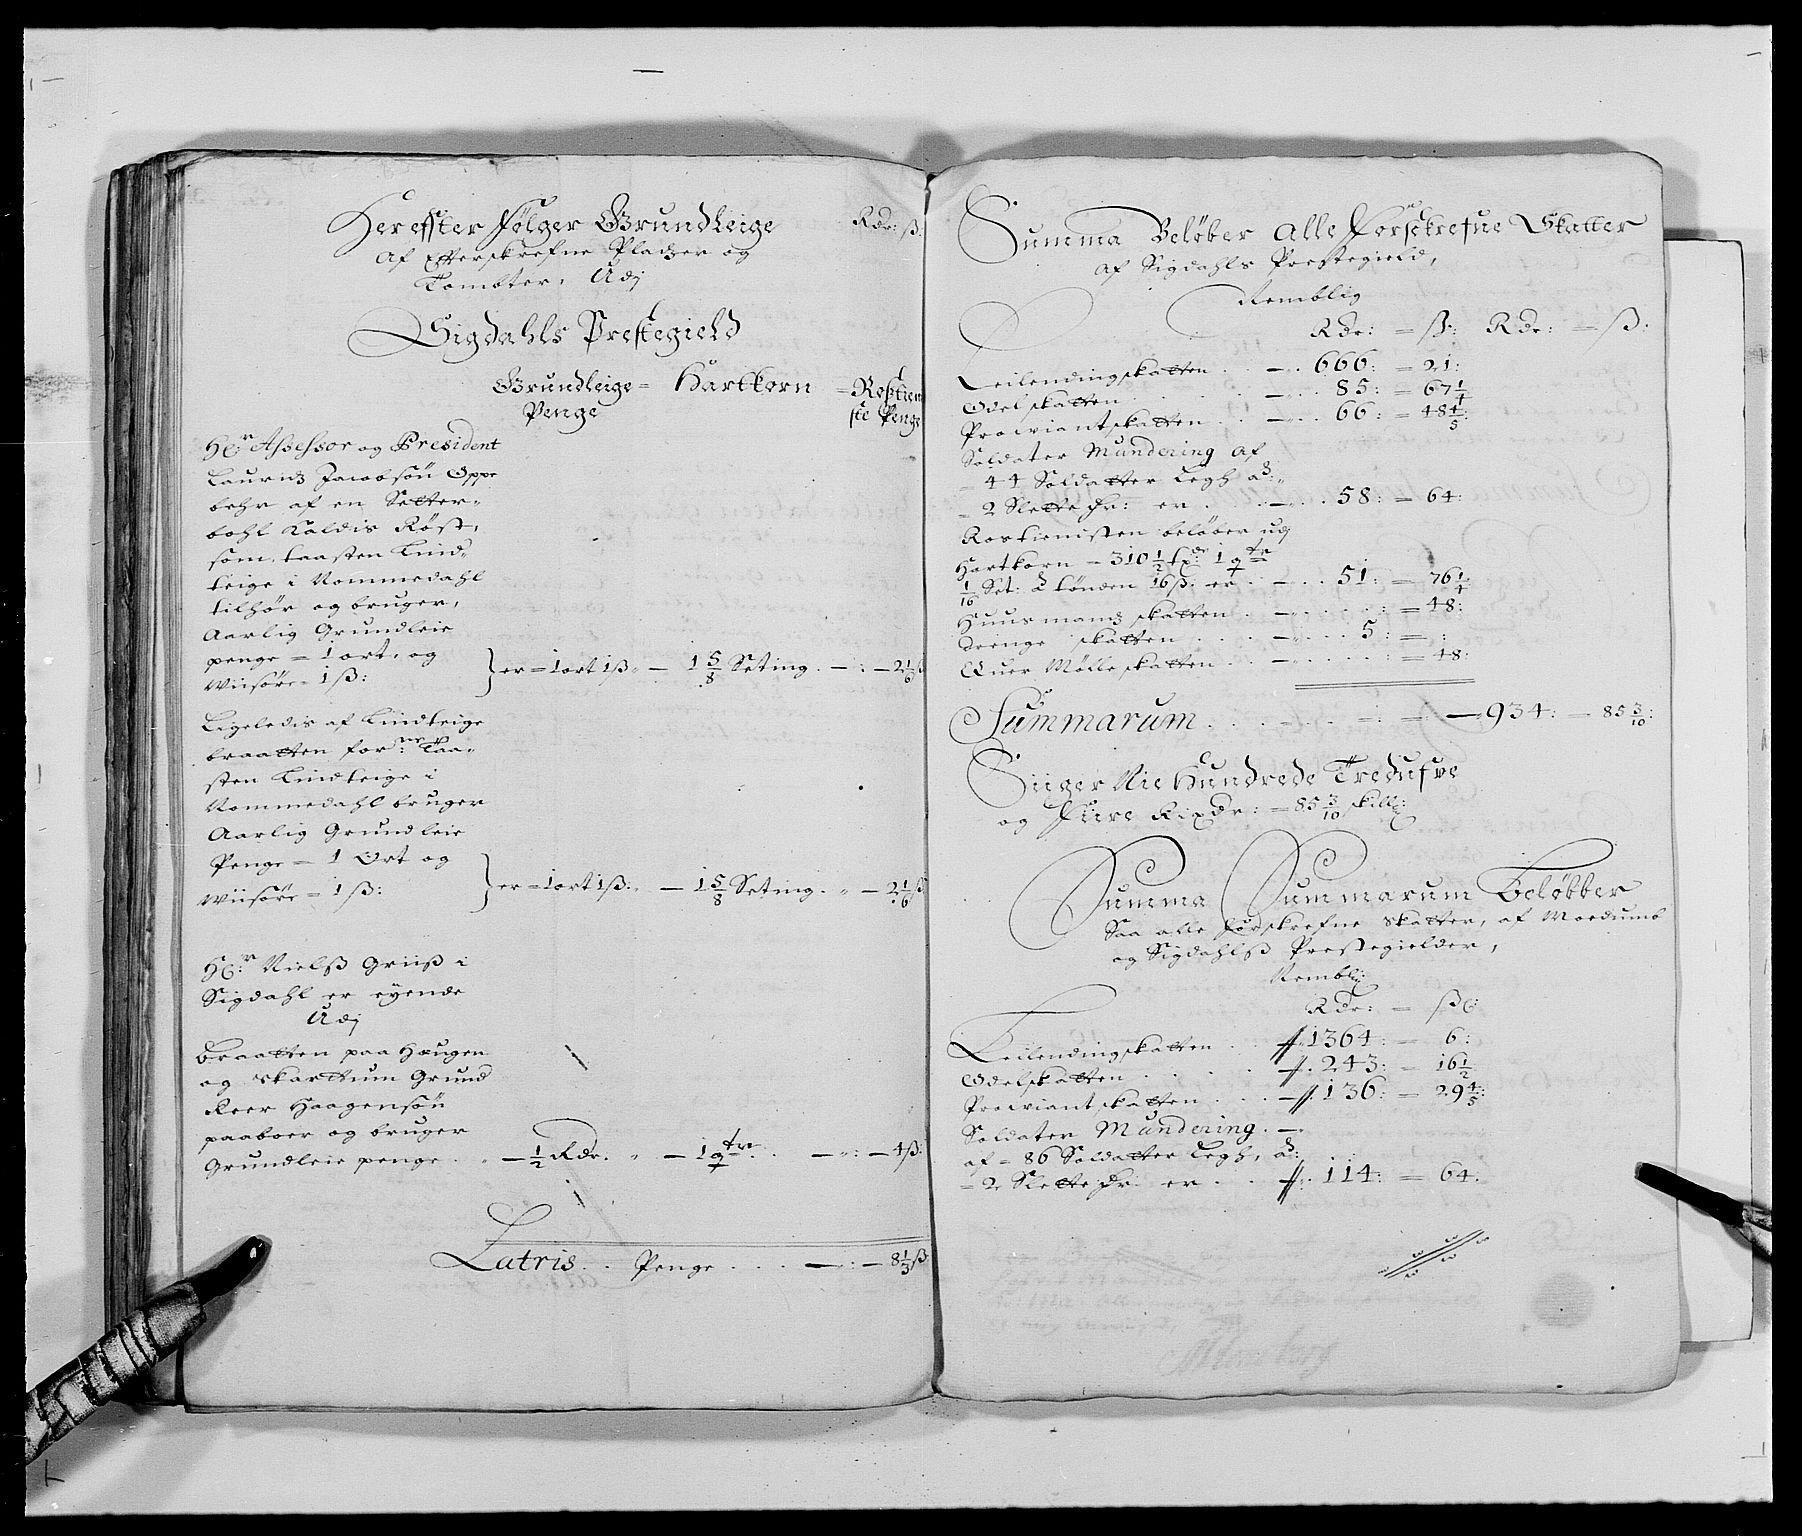 Hereffter Følger Grundleige
Rdr: ß:
Af Effterskrefne Pladzer og
Tombter, Udj
Sigdahls Prestegield
Grundleige = Hartkorn = Rostien
Penge ste Penge
Hr: Assessor og President
Lauridz Jacobsøn Oppe
behr af en Setter-
bohl Kaldis Røst,
som taasten Lind-
teige i Nommedahl
tilhør og bruger,
Aarlig Grundleie
penge = 1 ort, og
Wiisøre = 1 ß: } er = 1 ort 1 ß - 1 5/8 Seting . - : - 2 1/6 ß
Ligeledis af Lindteige
braatten for:ne Taa-
sten Lindteige i
Nommedahl bruger
Aarlig Grundleie
Penge = 1 Ort og
Wiisøre = 1 ß: } er = 1 ort 1 ß: - 1 5/8 Seting . - 2 1/6 ß
Hr: Nielß Griiß i
Sigdahl er eyende
Udj
Braatten paa Haugen
og Skarttum Grund
Reer Haagensøn
paaboer og bruger
Grundleie penge . - 1/2 Rdr. - 1 qtr . . - : - 4 ß:
Latris . . Penge . . . - : - 8 1/3 ß
Summa Beløber Alle Forskrefne Skatter
af Sigdahls Prestegield,
Nemblig
Rdr: = ß: Rdr: = ß:
Leilendingskatten . . - . 666: = 21:
Odelskatten . . . . - . 85: = 67 1/4
Prowiantskatten . . - . 66: = 48 4/5
Soldater Mundering Af
= 44 Soldatter Legh ad:
= 2 Slette dr: er . . - . 58: = 64:
Rostienisten beløber udj
Hartkorn = 310 1/2 tdr 1 qtr
1/16 Set: á tønden 16 ß: er . . - . . 51: = 76 1/4
Huusmandz skatten . . - . . . : = 48:
Drenge skatten . . . - . . . 5: = :
Quer Mølle skatten . . - . . . : = 48:
Summarum . . . . - 934: = 85 3/10:
Siiger Nie Hundrede Tredufve
og Fiire Rixdr: = 85 3/10 skill:
Summa Summarum Beløbber
Saa alle forskrefne Skatter, af Moedumb
og Sigdahlß Prestegielder,
Nembl:
Rdr: = ß:
Leilendingskatten . . . 1364: = 6:
Odelskatten . . . . . 243: = 16 1/2
Prowiantskatten . . . 136: = 29 4/5:
Soldater Mundering . -
af = 86 Soldatter Legh, ad:
= 2 Slette dr: er . . . 114: = 64.